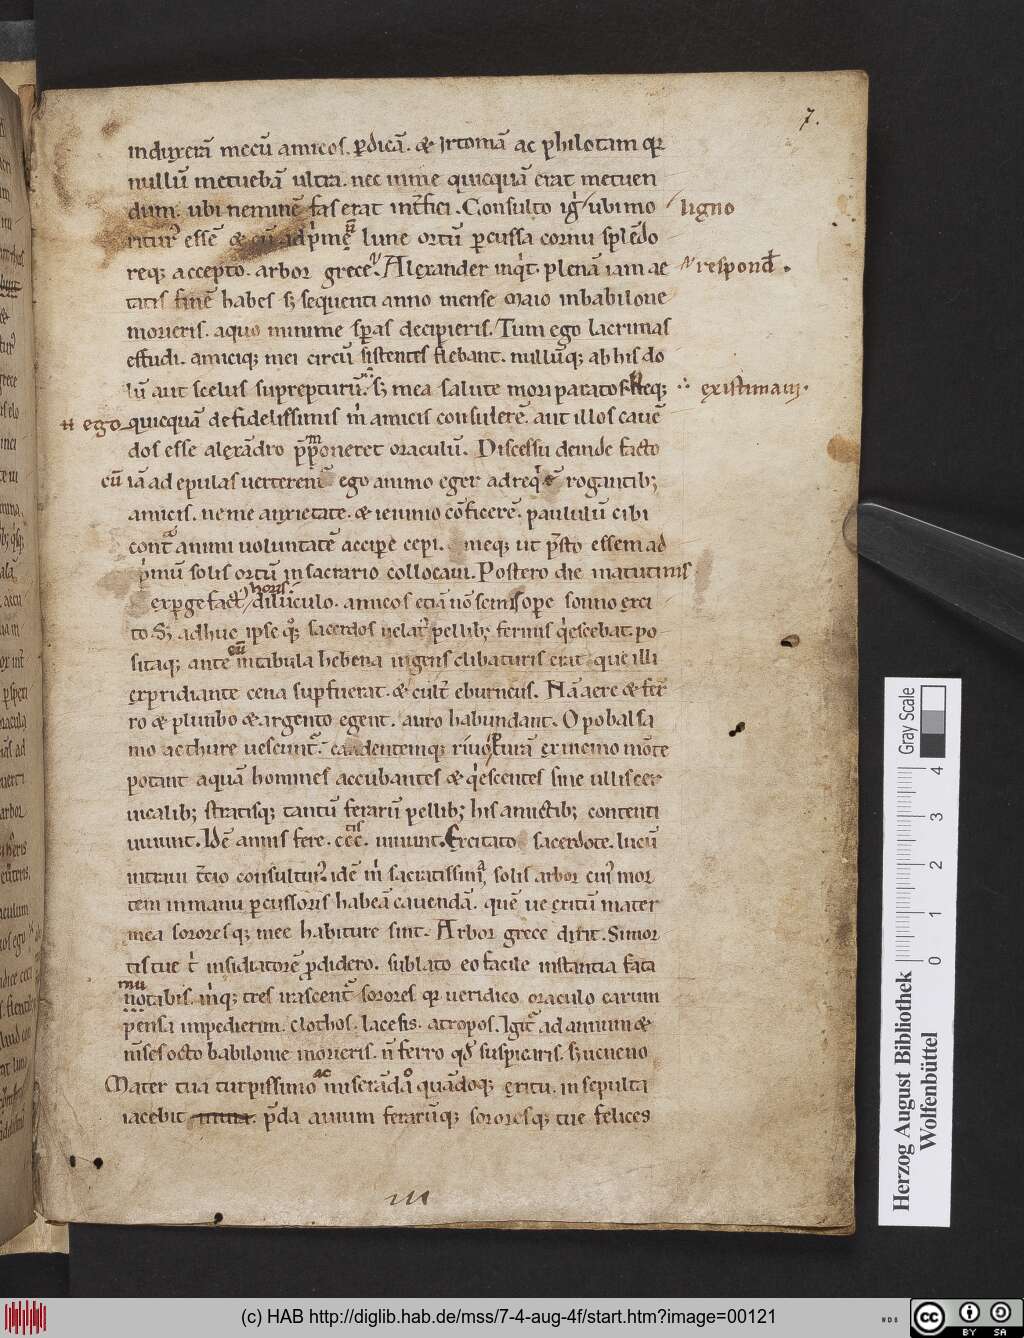 7.
induxerā mecū amicos. pdicā. & irtomā ac philotam qr
nullū metuebā ultra. nec inme quicquā erat metuen
dum. ubi neminē fas erat int̄fici. Consulto ig̍ ubi mo ligno
ritur᾽ essē & cū ad p̍me lune ortū pcussa cornu splēdo
req; accepto. arbor grece. Alexander inq̍t. plenā iam ae respond̄.
tatis finē habes s; sequenti anno mense maio inbabilone
morieris. aquo minime speras decipieris. Tum ego lacrimas
effudi. amiciq; mei circū sistentes flebant. nullūq; ab his do
lū aut scelus suprepturū. s; mea salute mori paratos Neq; existimaui.
ñ ego quicquā de fidelissimis m̍ amicis consulerē. aut illos cauē
dos esse alexādro pponeret oraculū. Discessu deinde facto
cū iā ad epulas uerteremˀ ego animo eger adreq̍ē rogantib;
amicis. ne me anxietate. & ieiunio cōficerē. paululū cibi
contᵃ animi uoluntatē accipe cepi. meq; ut p̄sto essem ad
p̍mū solis ortū in sacrario collocaui. Postero die matutinis
expgefactˀ horis diluculo. amicos etiā nō semisope sonno exci
to. S; adhuc ipse qˀ sacerdos uelatˀ pellib; ferinis q̍escebat. po
sitaq; ante eū intabula hebena ingens clibaturis erat. que illi
expridiante cena supfuerat. & cult̄ eburneus. Nā aere & fer
ro & plumbo & argento egent. auro habundant. Opobalsa
mo ac thure uescuntˀ. cadentemq; riuo purā ex uicino mōte
potant aquā homines accubantes & q̍escentes sine ullis cer
uicalib; stratisq; tantū ferarū pellib; his amictib; contenti
uiuunt. Idē annis fere. ccc.tis uiuunt. Excitato sacerdote. lucū
intraui t̄cio consulturˀ. idē m̍ sacratissimᵃ; solis arbor cuiˀ mor
tem inmanu pcussoris habeā cauendā. quē ue exitū mater
mea sororesq; mee habiture sint. Arbor grece dixit. Si mor
tis tue t̍ insidiatorē pdidero. sublato eo facile instantia fata
mutabis. m̍q; tres irascentˀ sorores qr ueridico oraculo earum
pensa impedierim. clothos. lacefis. atropos. Igitˀ ad annum &
m̄ses octo babilonie morieris. n̄ ferro qd̄ suspicaris. s; ueneno
Mater tua turpissimo ac miserādo quādoq; exitu. insepulta
iacebit p̄da auium ferarūq; sororesq; tue felices
III
Gray Scale
0 1 2 3 4
Herzog August Bibliothek
Wolfenbüttel
(c) HAB http://diglib.hab.de/mss/7-4-aug-4f/start.htm?image=00121
WDB
cc BY SA